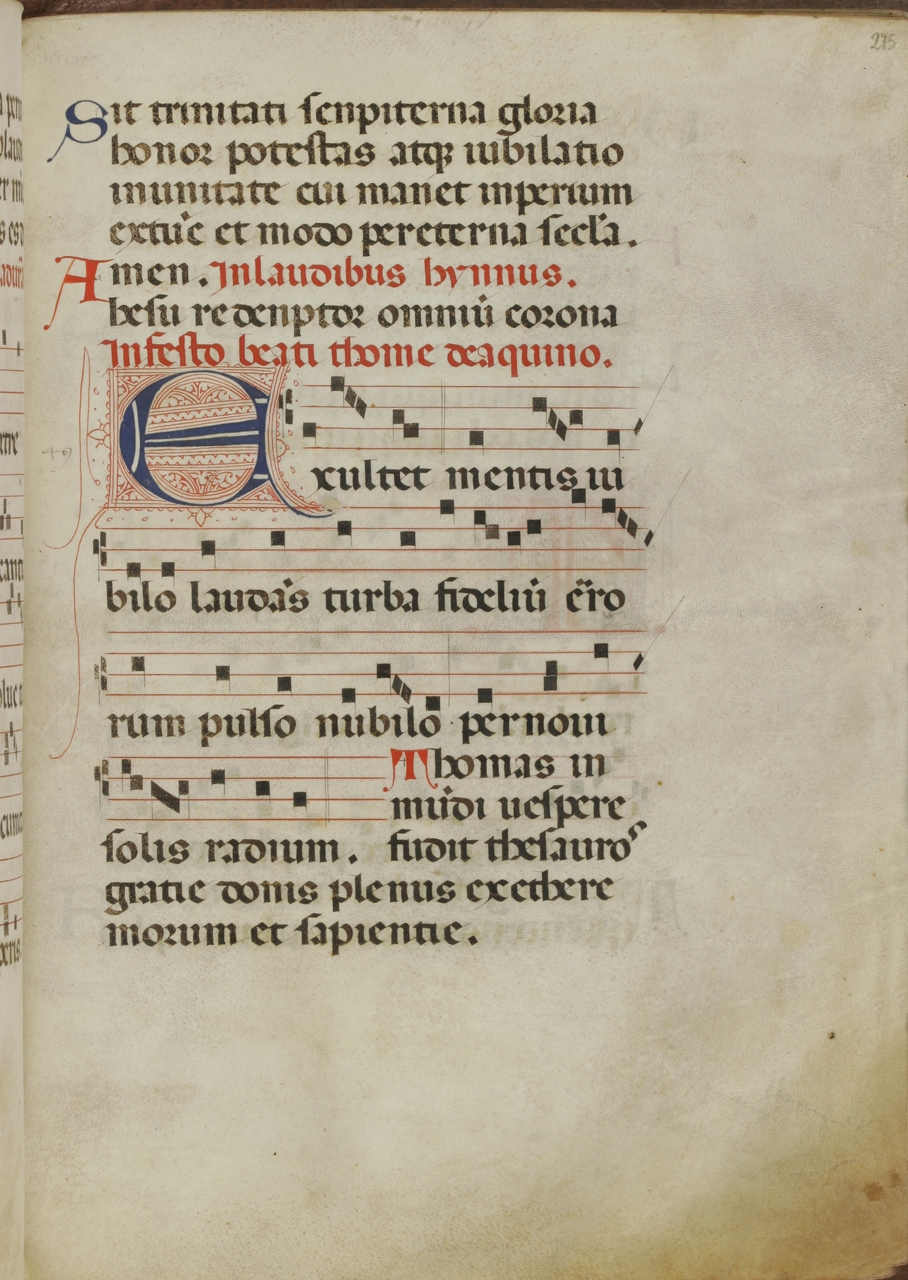 275
Sit trinitati senpiterna gloria
honor potestas atqꝫ iubilatio
inunitate cui manet inperium
extūc et modo pereterna secl'a.
Amen. Inlaudibus hynnus.
hesu redenptor omniū corona
Infesto beati thome deaquino.
Exultet mentis iu
bilo laudās turba fideliū ēro
rum pulso nubilo per noui
Thomas in
mūdi uespere
solis radium. fudit thesauros
gratie donis plenus exethere
morum et sapientie.